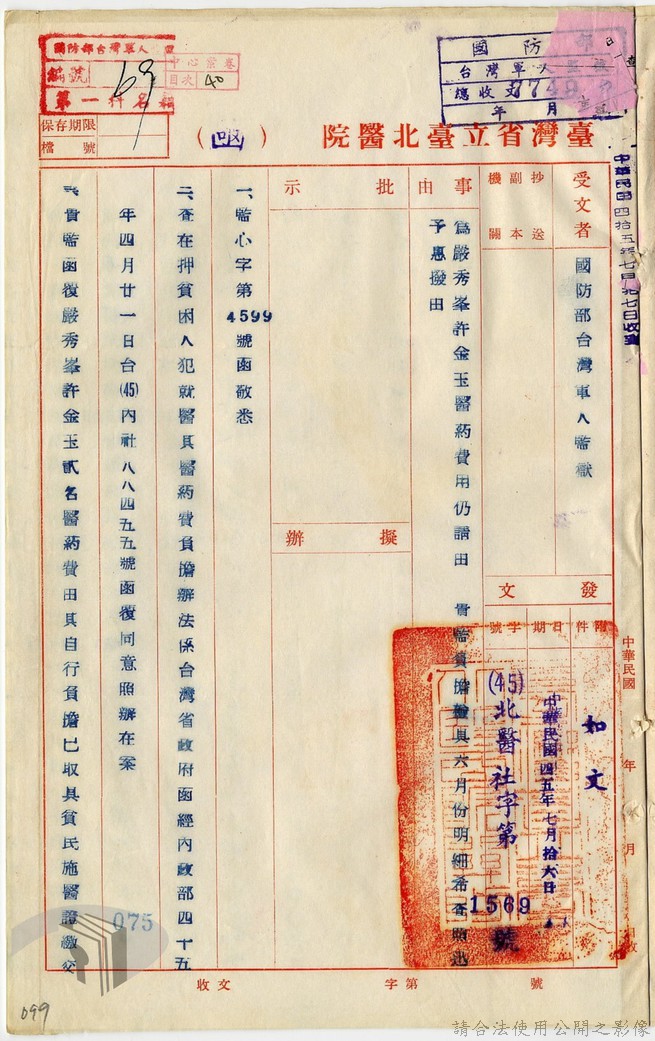 臺灣省立臺北醫院(函)
國防部台灣軍人監獄
編號 69
中心案卷
目次 40
第一科名籍
保存期限
檔號
國防部
台灣軍人監獄
總收文 7749
年 月
中華民國四拾五年七月廿七日收到
受文者
國防部台灣軍人監獄
抄送
副本
機關
事由
為嚴秀峯許金玉醫葯費用仍請由 貴監負擔檢具六月份明細希查照迅
予惠撥由
批示
擬辦
發文
附件
日期
字號
如文
中華民國四五年七月拾六日
(45)北醫社字第1569號
一、監心字第4599號函敬悉
二、查在押貧困人犯就醫具醫葯費負擔辦法係台灣省政府函經內政部四十五
年四月廿一日台(45)內社八八四五五號函復同意照辦在案
三、貴監函復嚴秀峯許金玉貳名醫葯費由其自行負擔已取具貧民施醫證繳交
中華民國 年 月
收文 字第 號
075
099
請合法使用公開之影像